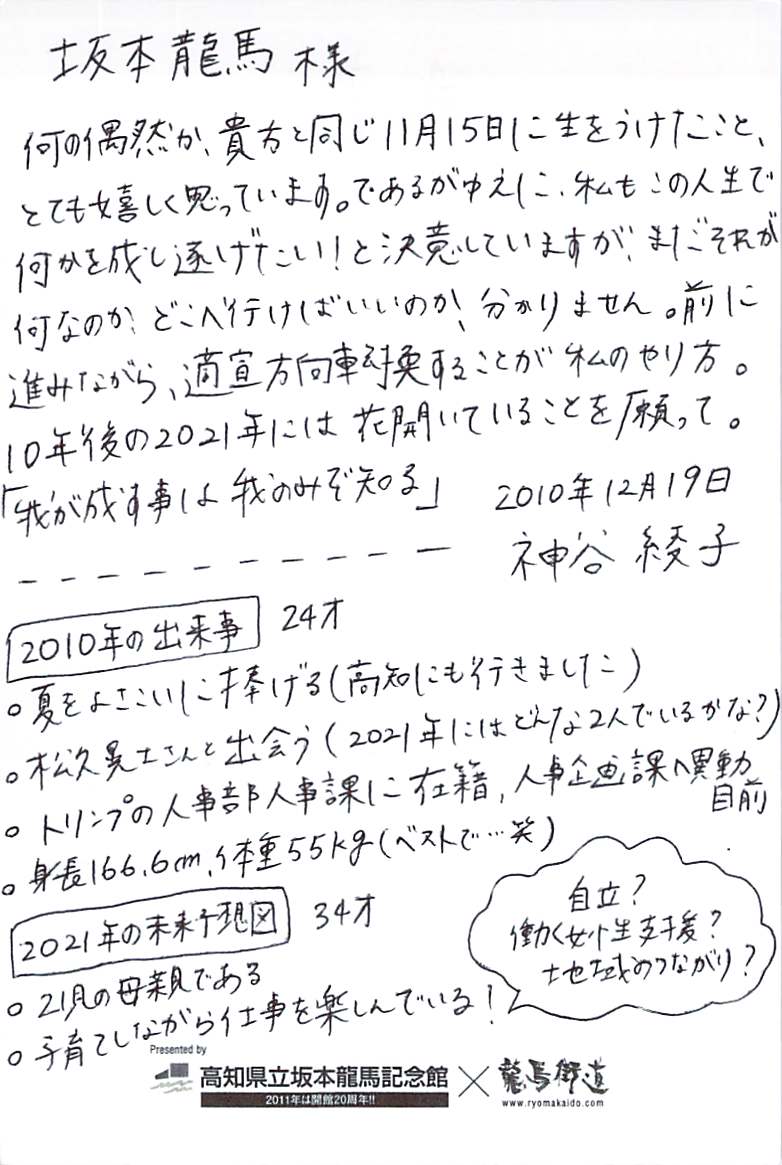 坂本龍馬様
何の偶然か、貴方と同じ11月15日に生をうけたこと、
とても嬉しく思っています。であるがゆえに、私もこの人生で
何かを成し遂げたい!と決意していますが、まだそれが
何なのか、どこへ行けばいいのか、分かりません。前に
進みながら、適宜方向転換することが私のやり方。
10年後の2021年には花開いていることを願って。
「我が成す事は我のみぞ知る」 2010年12月19日
神谷 綾子
2010年の出来事 24才
○夏をよさこいに捧げる(高知にも行きました)
○松久晃士さんと出会う(2021年にはどんな2人でいるかな?)
○トリンプの人事部人事課に在籍,人事企画課へ異動
目前
○身長166.6cm,体重55kg(ベストで…笑)
2021年の未来予想図 34才
○2児の母親である
○子育てしながら仕事を楽しんでいる!
自立?
働く女性支援?
地域のつながり?
Presented by
高知県立坂本龍馬記念館 × 龍馬街道
2011年は開館20周年!!
www.ryomakaido.com